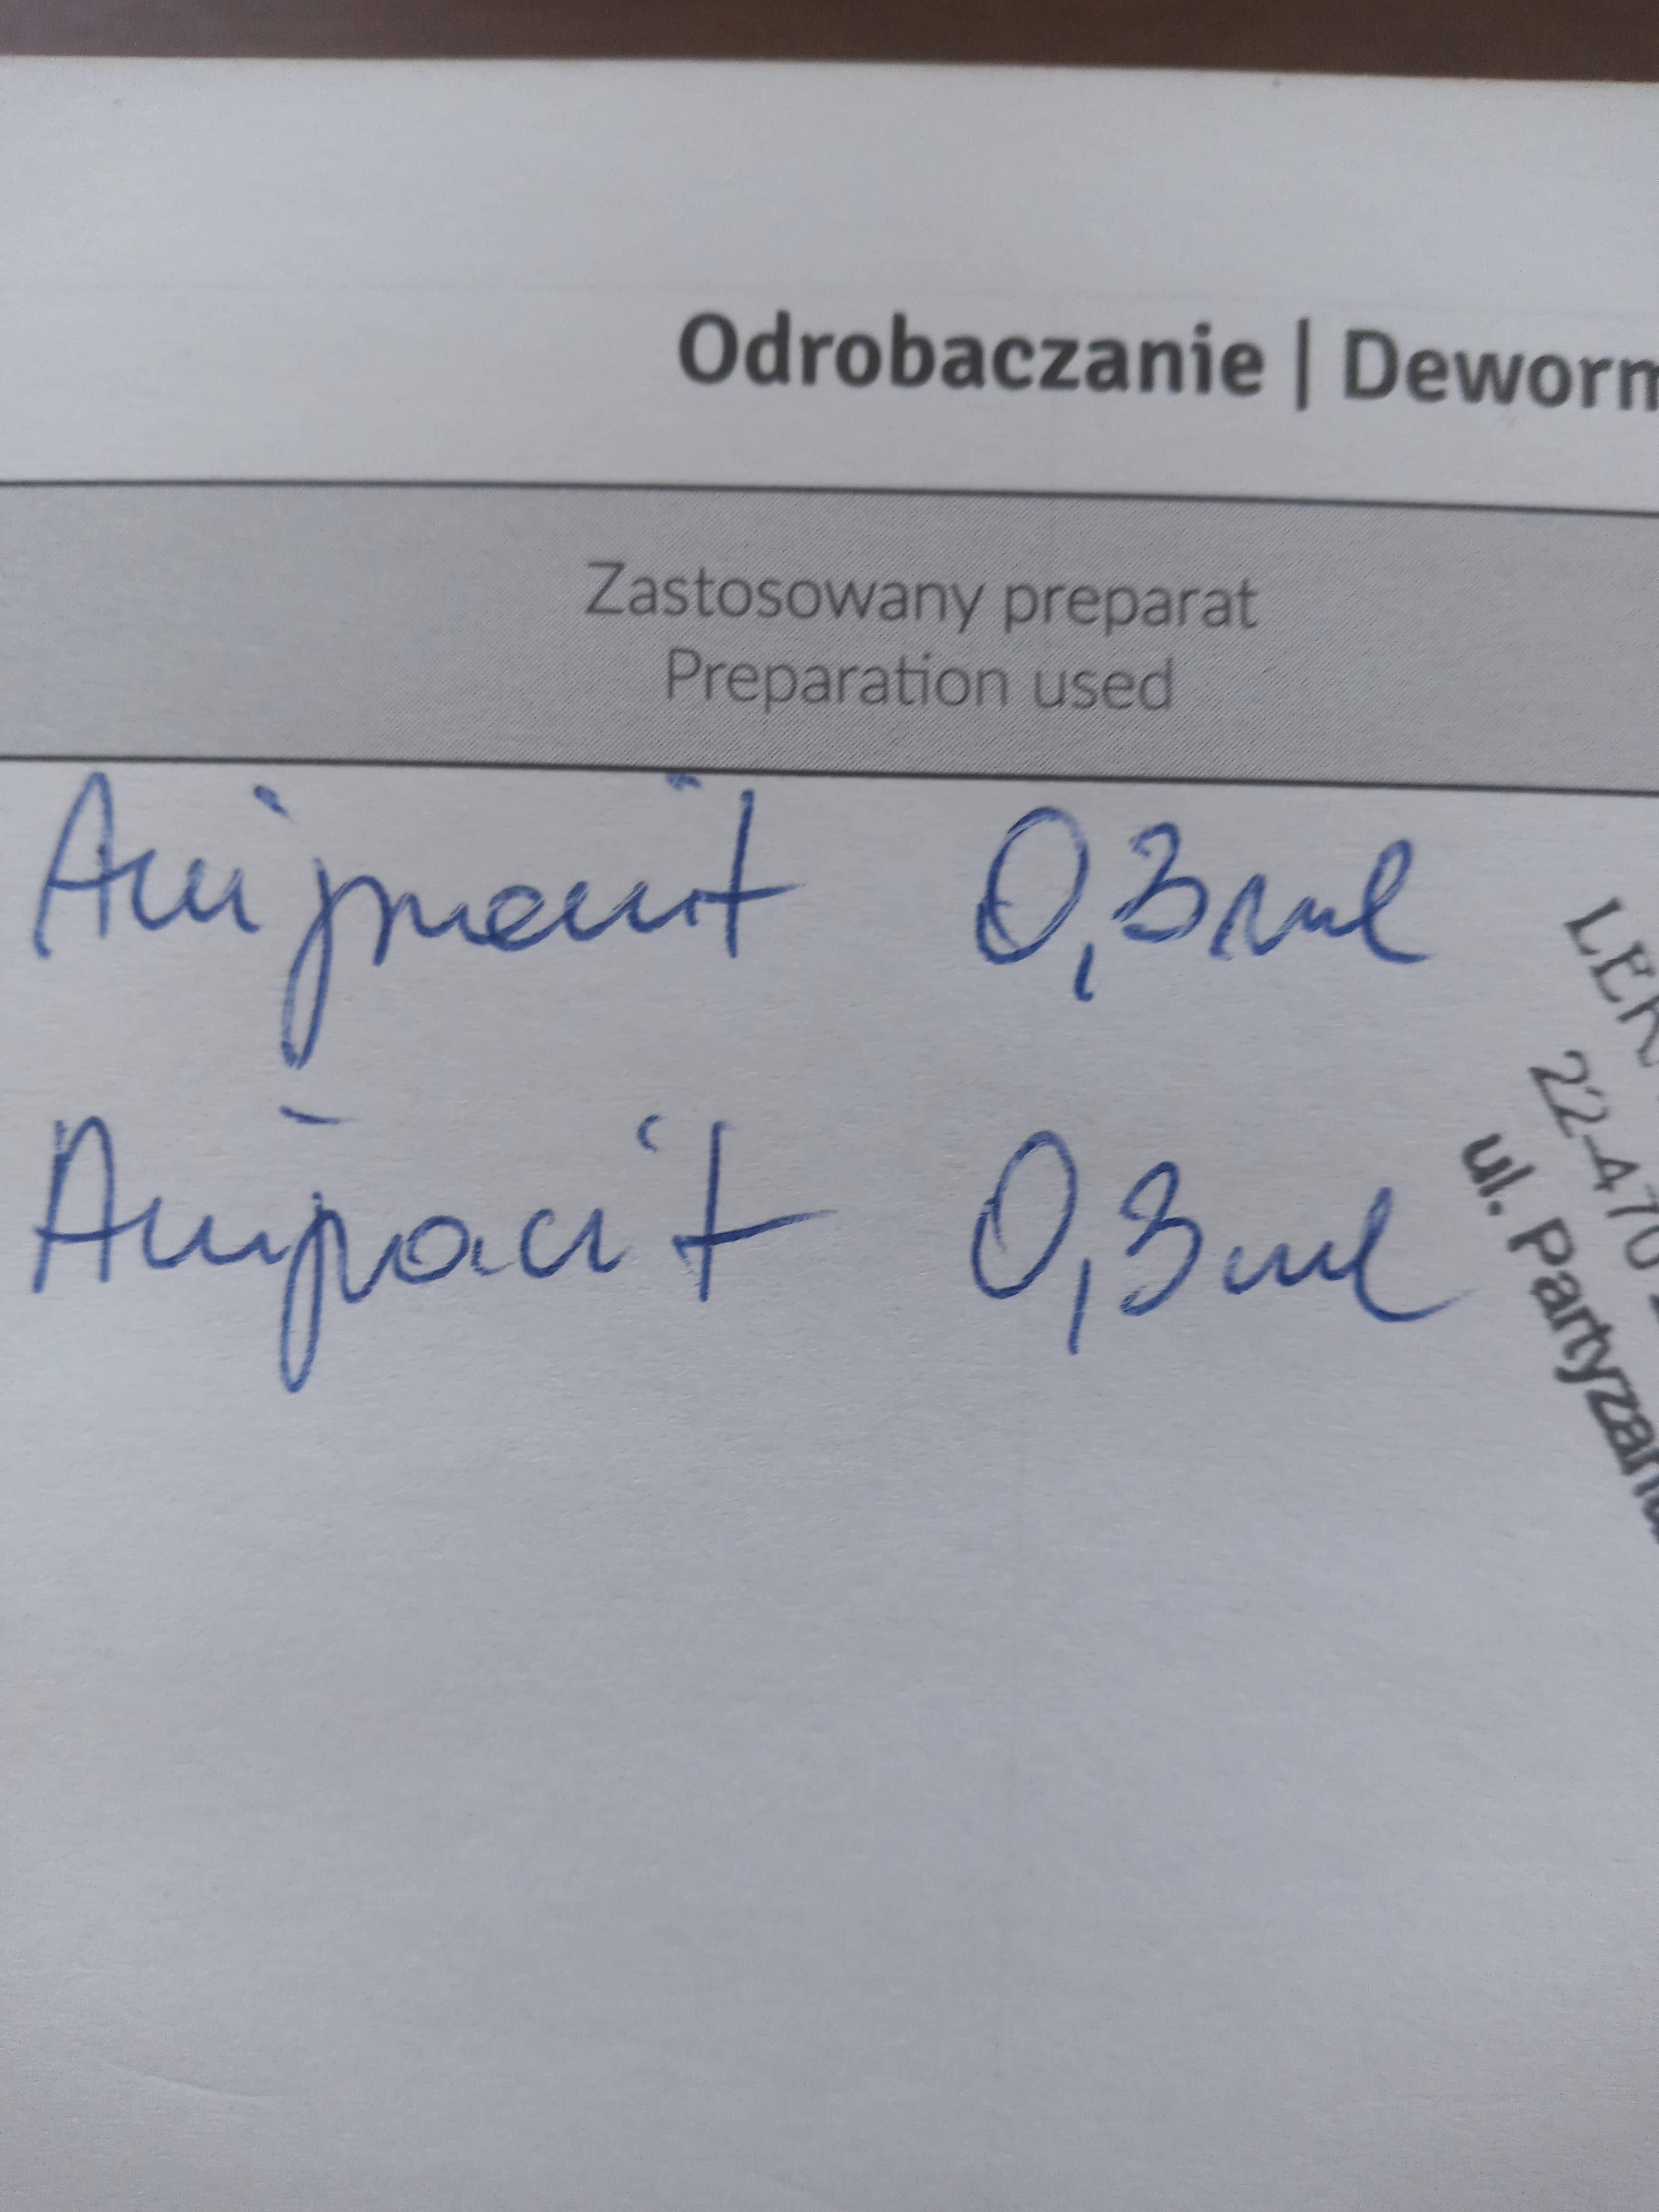 Odrobaczanie | Deworm
Zastosowany preparat
Preparation used
0,3ml
Aniprazit 0,3ml
LEK
22-470
ul. Partyzan